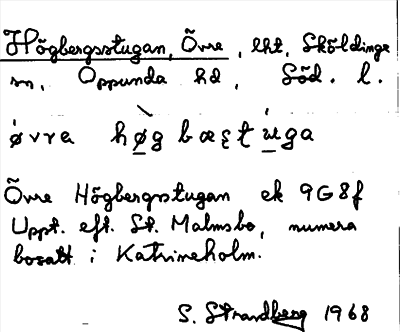 Högbergsstugan, Övre, lht, Sköldinge
sn, Oppunda hd, Söd. l.
øvra høg bæʂtuga
Övre Högbergsstugan ek 9G8f
Uppt. eft. St. Malmsbo, numera
bosatt i Katrineholm.
S. Strandberg 1968